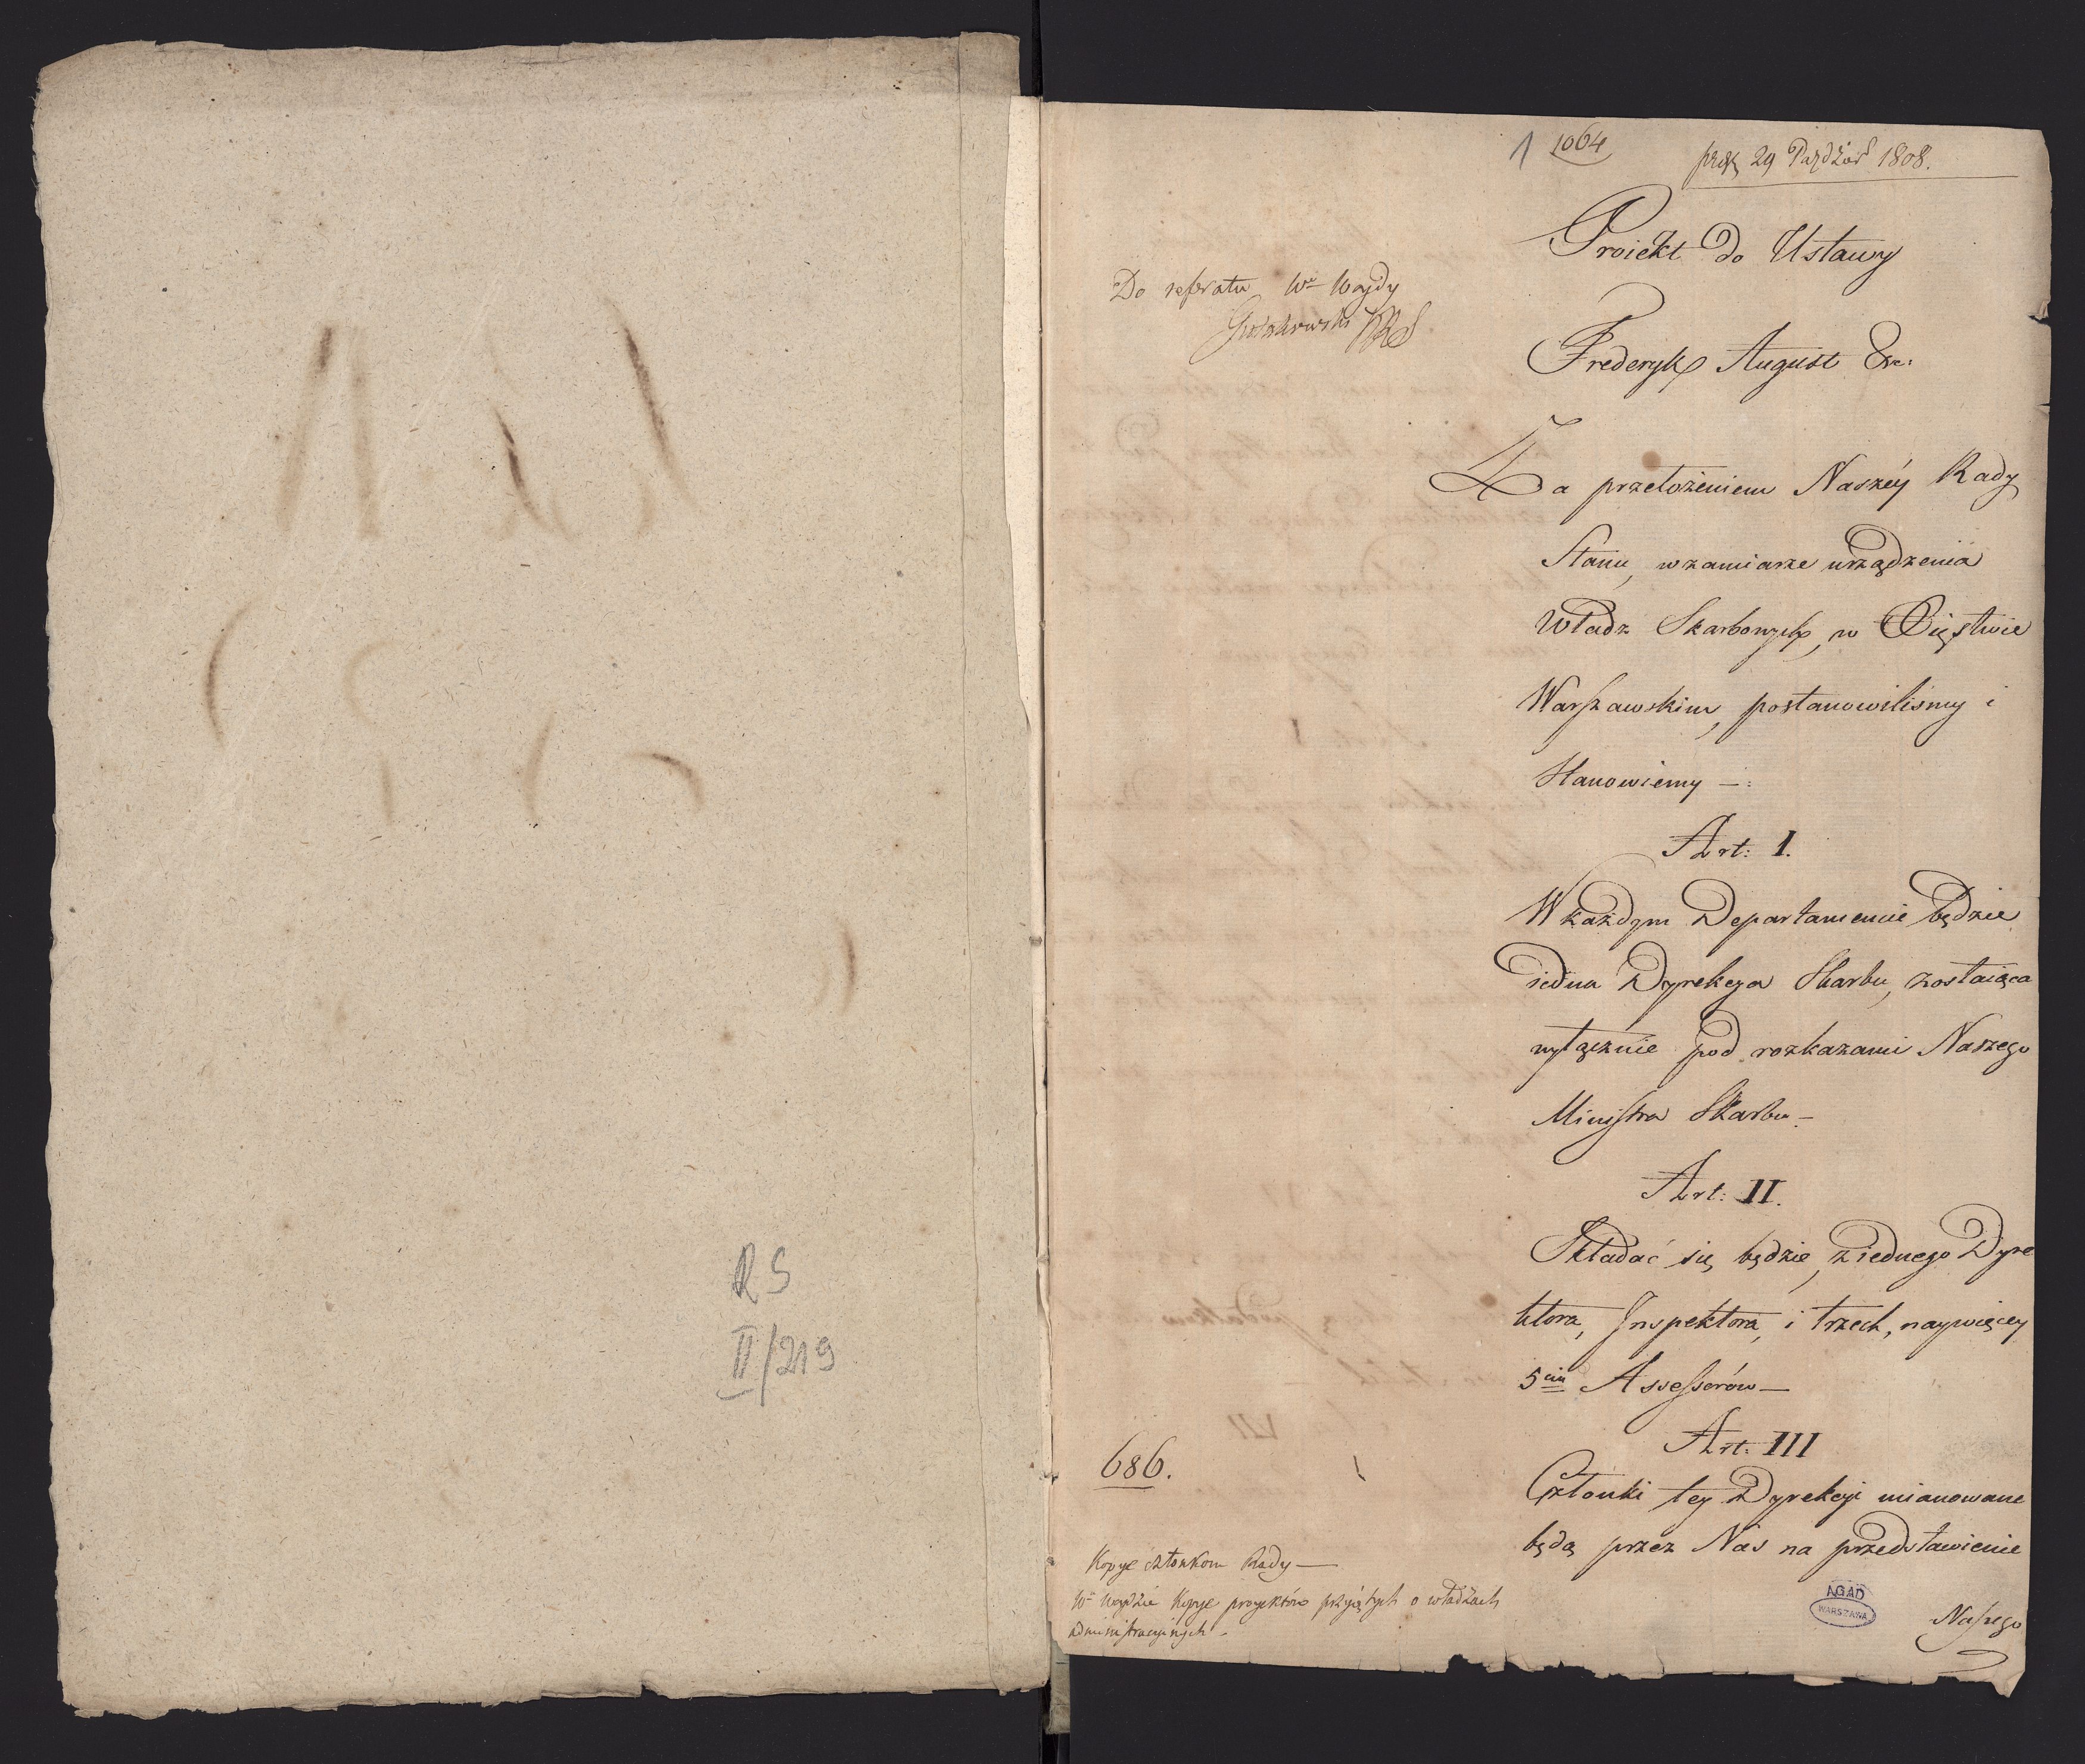 RS
II/219
1
1064
29 Paździer 1808.
Do referatu Wo Wojdy
Proiekt do Ustawy
Frederyk August &c:
Za przełożeniem Naszéy Rady
Stanu, w zamiarze urządzenia
Władz Skarbowych, w Xięstwie
Warszawskim, postanowiliśmy i
Stanowiemy —:
Art: I.
W każdym Departamencie będzie
iedna Dyrekcya Skarbu, zostaiąca
wyłącznie pod rozkazami Naszego
Ministra Skarbu —
Art: II.
Składać się będzie, z iednego Dyre
ktora, Inspektora, i trzech, naywięcey
5ciu Assessorów —
Art: III
Członki tey Dyrekcyi mianowane
będą przez Nas na przedstawienie
Naszego
686.
Kopye członkom Rady —
Wu Wojdzie Kopye proyektów przyiętych o władzach
administracyinych.
AGAD
WARSZAWA